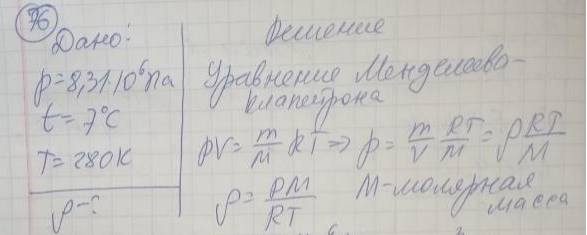 76
Дано:
p=8,31·10⁶Па
t=7°C
T=280К
ρ-?
Решение
Уравнение Менделеева-
клапейрона
pV=m/M RT⇒p=m/V RT/M=ρRT/M
ρ=pM/RT M-молярная
масса